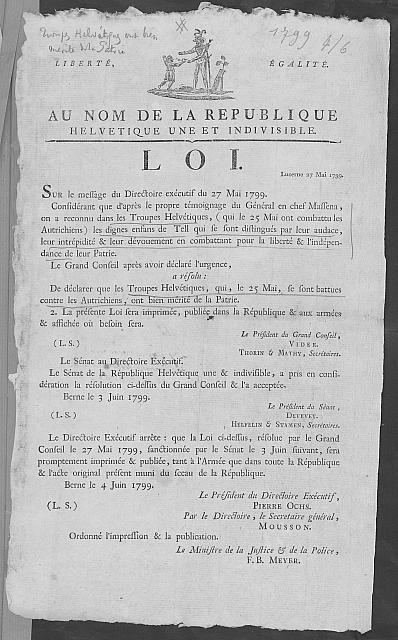 Troupes Helvétiques ont bien
mérité de la Patrie
1799 4/6
LIBERTÉ,
ÉGALITÉ.
AU NOM DE LA REPUBLIQUE
HELVETIQUE UNE ET INDIVISIBLE.
LOI.
Lucerne 27 Mai 1799.
SUR le message du Directoire exécutif du 27 Mai 1799.
Considérant que d'après le propre témoignage du Général en chef Massena,
on a reconnu dans les Troupes Helvétiques, (qui le 25 Mai ont combattu les
Autrichiens) les dignes enfans de Tell qui se sont distingués par leur audace,
leur intrépidité & leur dévouement en combattant pour la liberté & l'indépen-
dance de leur Patrie.
Le Grand Conseil après avoir déclaré l'urgence,
a résolu:
De déclarer que les Troupes Helvétiques, qui, le 25 Mai, se sont battues
contre les Autrichiens, ont bien mérité de la Patrie.
2. La présente Loi sera imprimée, publiée dans la République & aux armées
& affichée où besoin sera.
Le Président du Grand Conseil,
(L. S.)
VIDER.
THORIN & MATHY, Secrétaires.
Le Sénat au Directoire Exécutif.
Le Sénat de la République Helvétique une & indivisible, a pris en consi-
dération la résolution ci-dessus du Grand Conseil & l'a acceptée.
Berne le 3 Juin 1799.
Le Président du Sénat,
(L. S.)
DEVEVEY.
HELFELIN & STAMEN, Secrétaires.
Le Directoire Exécutif arrête: que la Loi ci-dessus, résolue par le Grand
Conseil le 27 Mai 1799, sanctionnée par le Sénat le 3 Juin suivant, sera
promptement imprimée & publiée, tant à l'Armée que dans toute la République
& l'acte original présent muni du sceau de la République.
Berne le 4 Juin 1799.
Le Président du Directoire Exécutif,
(L. S.)
PIERRE OCHS.
Par le Directoire, le Secretaire général,
MOUSSON.
Ordonné l'impression & la publication.
Le Ministre de la Justice & de la Police,
F. B. MEYER.